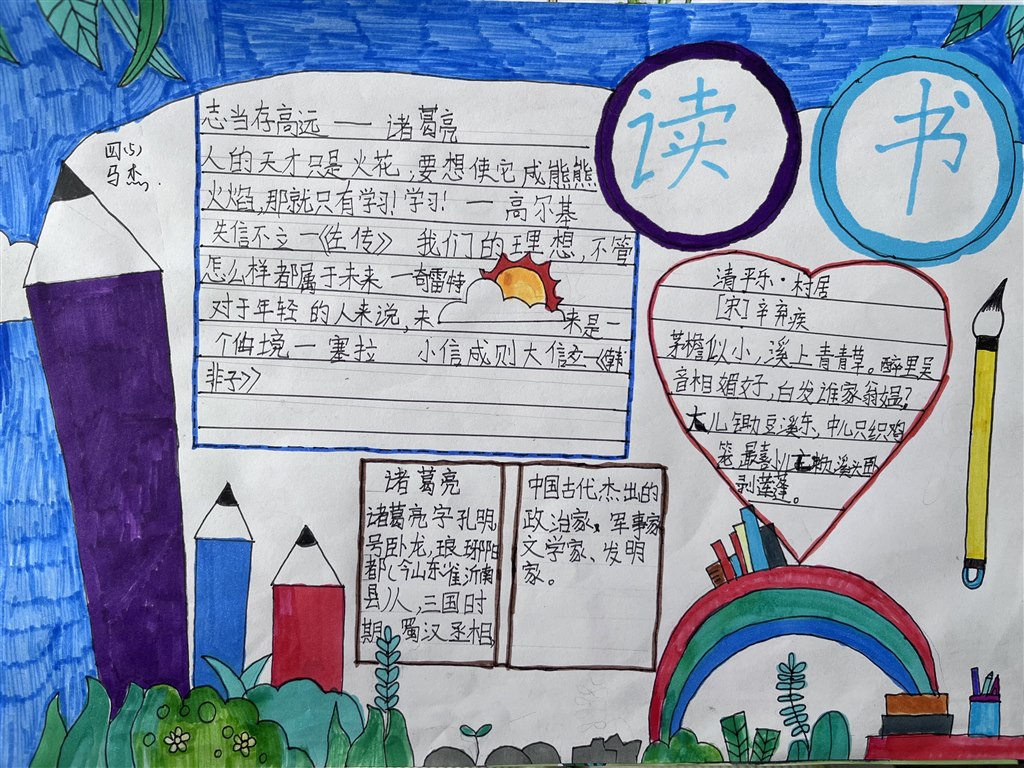 读书
四(5)
马杰
志当存高远 —— 诸葛亮
人的天才只是火花,要想使它成熊熊
火焰,那就只有学习!学习! — 高尔基
失信不立 —《左传》 我们的理想,不管
怎么样都属于未来 —奇雷特
对于年轻的人来说,未 来是一
个仙境 — 塞拉 小信成则大信立 —《韩
非子》
清平乐·村居
[宋]辛弃疾
茅檐似小,溪上青青草。醉里吴
音相媚好,白发谁家翁媪?
大儿锄豆溪东,中儿只织鸡
笼 最喜小儿 溪头卧
剥莲蓬。
诸葛亮
诸葛亮字孔明,
号卧龙,琅琊阳
都(今山东省沂南
县)人,三国时
期 蜀汉丞相
中国古代杰出的
政治家,军事家
文学家、发明
家。